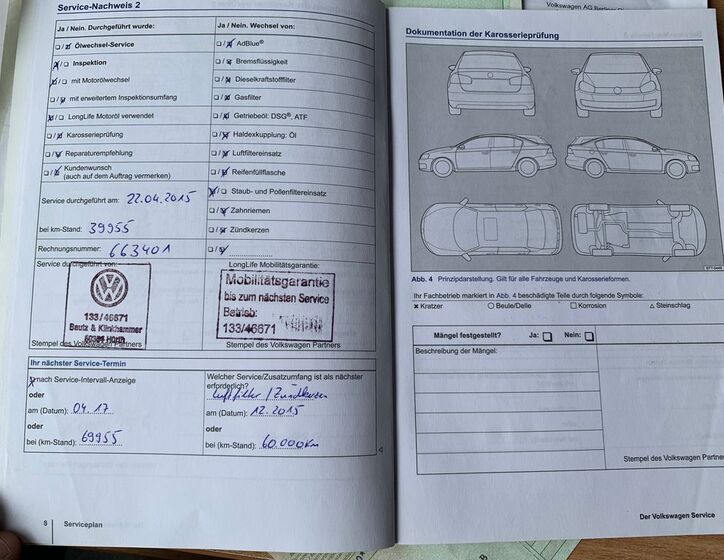 Volkswagen AG Berliner
Service-Nachweis 2
Ja / Nein. Durchgeführt wurde:
Ölwechsel-Service
Inspektion
mit Motorölwechsel
mit erweitertem Inspektionsumfang
LongLife Motoröl verwendet
Karosserieprüfung
Reparaturempfehlung
Kundenwunsch
(auch auf dem Auftrag vermerken)
Service durchgeführt am: 22.04.2015
bei km-Stand: 39955
Rechnungsnummer: 663401
Service durchgeführt von:
133/46671
Bautz & Klinkhammer
50354 Hürth
Stempel des Volkswagen Partners
Ja / Nein. Wechsel von:
AdBlue®
Bremsflüssigkeit
Dieselkraftstofffilter
Gasfilter
Getriebeöl: DSG®, ATF
Haldexkupplung: Öl
Luftfiltereinsatz
Reifenfüllflasche
Staub- und Pollenfiltereinsatz
Zahnriemen
Zündkerzen
LongLife Mobilitätsgarantie:
Mobilitätsgarantie
bis zum nächsten Service
Betrieb:
133/46671
Stempel des Volkswagen Partners
Ihr nächster Service-Termin
nach Service-Intervall-Anzeige
oder
am (Datum): 04.17
oder
bei (km-Stand): 69955
Welcher Service/Zusatzumfang ist als nächster
erforderlich?
Luftfilter / Zündkerzen
am (Datum): 12.2015
oder
bei (km-Stand): 60.000km
8 Serviceplan
Dokumentation der Karosserieprüfung
Abb. 4 Prinzipdarstellung. Gilt für alle Fahrzeuge und Karosserieformen.
Ihr Fachbetrieb markiert in Abb. 4 beschädigte Teile durch folgende Symbole:
Kratzer Beule/Delle Korrosion Steinschlag
Mängel festgestellt? Ja: Nein:
Beschreibung der Mängel:
Stempel des Volkswagen Partners
Der Volkswagen Service